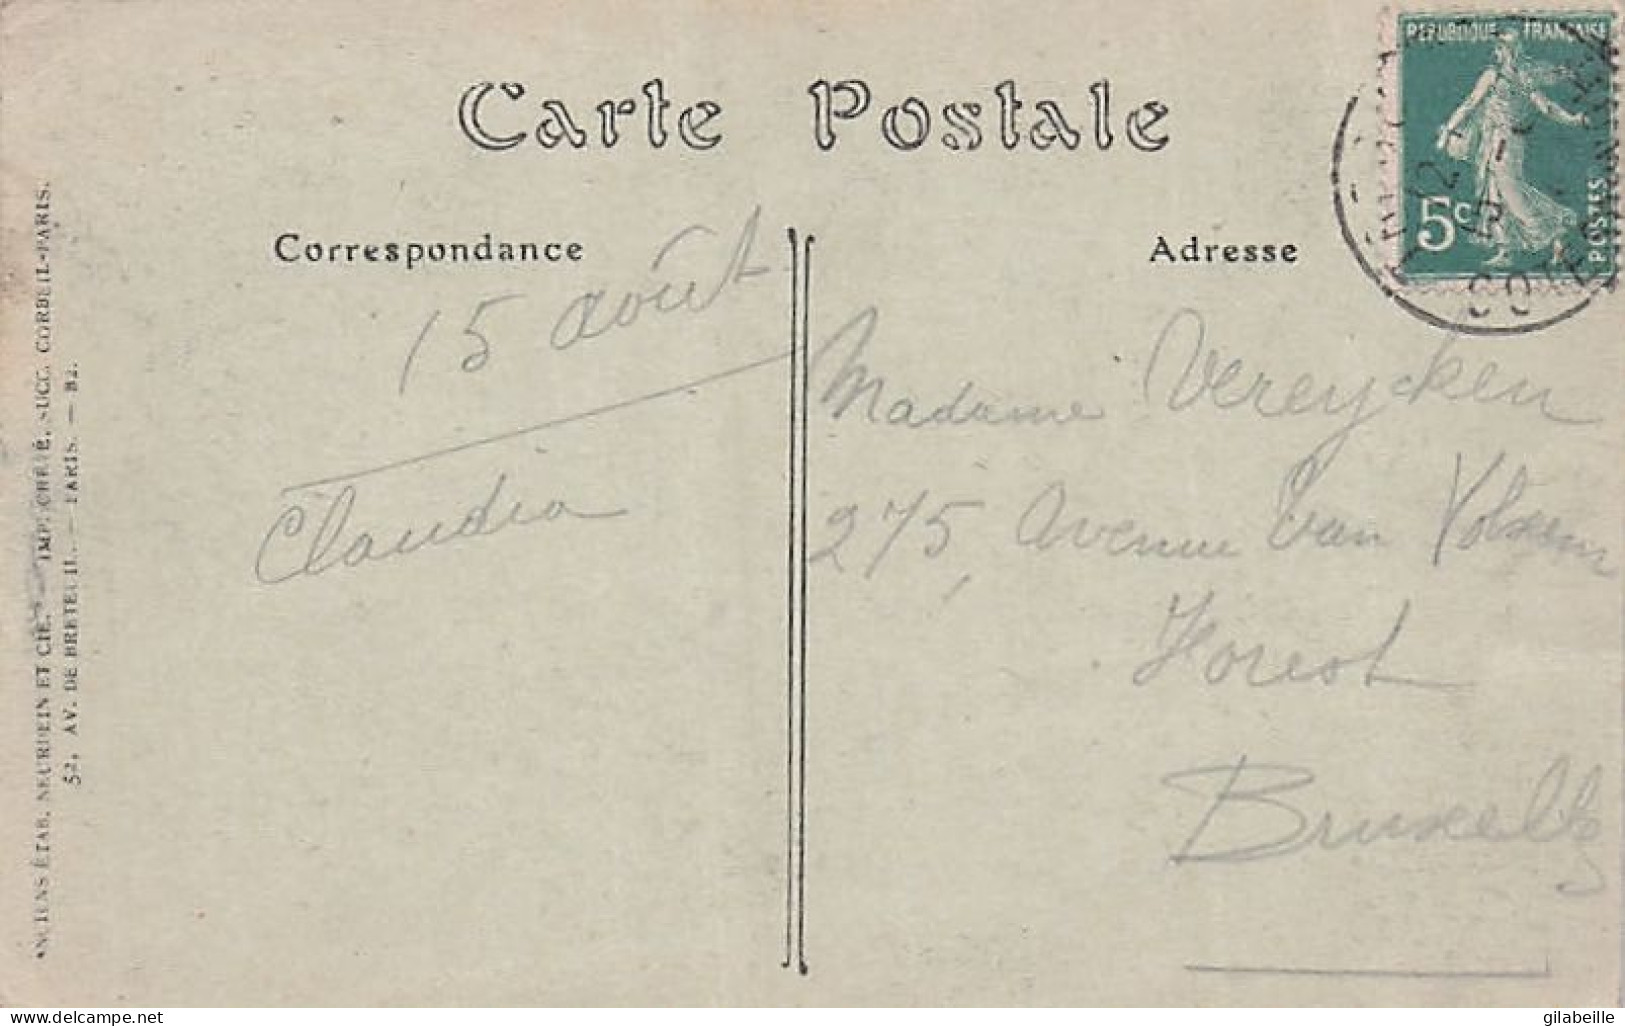 Carte Postale
RÉPUBLIQUE FRANÇAISE
5c
POSTES
COTE
Correspondance
Adresse
15 août
Claudia
Madame Vereycken
275, Avenue Van Volxem
Forest
Bruxelles
ANCIENS ÉTAB. NEURDEIN ET CIE. — IMP. CRÉTÉ, SUCC. CORBEIL-PARIS.
52, AV. DE BRETEUIL. — PARIS. — B2.
delcampe.net
gilabeille